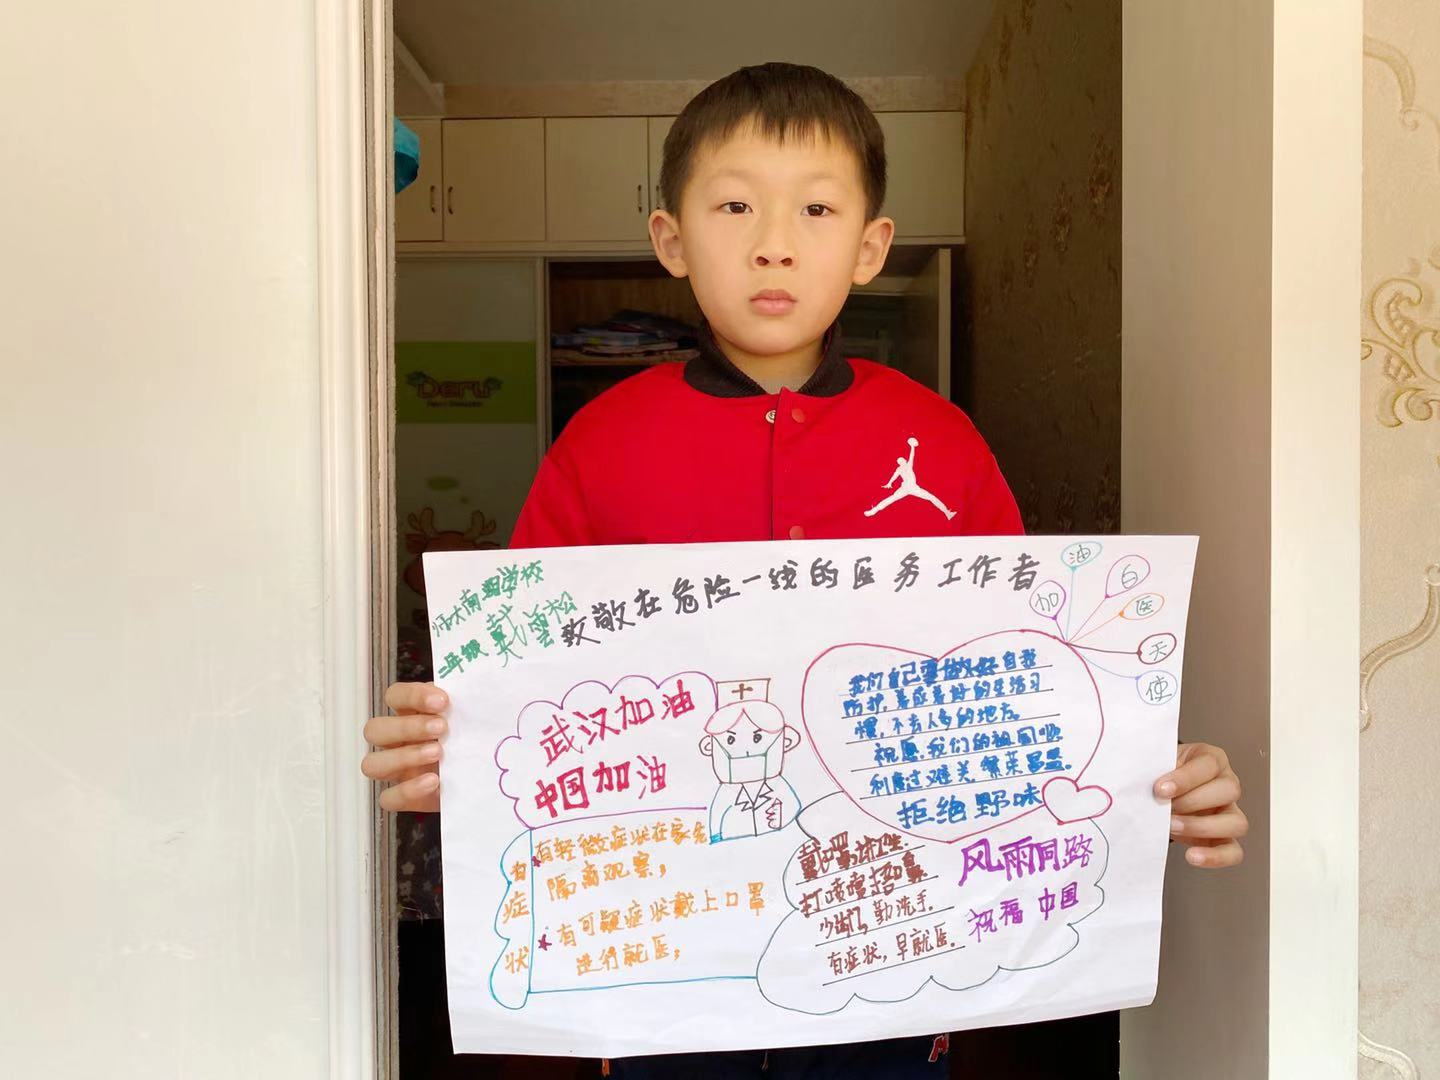 师大南湖学校
二年级
致敬在危险一线的医务工作者
加油白医天使
武汉加油
中国加油
有症状
有轻微症状在家先
隔离观察;
有可疑症状戴上口罩
进行就医;
我们自己要做好自我
防护,养成良好的生活习
惯,不去人多的地方。
祝愿我们的祖国顺
利度过难关,繁荣昌盛。
拒绝野味
打喷嚏捂口鼻
少出门,勤洗手.
有症状,早就医.
风雨同路
祝福中国
Deru